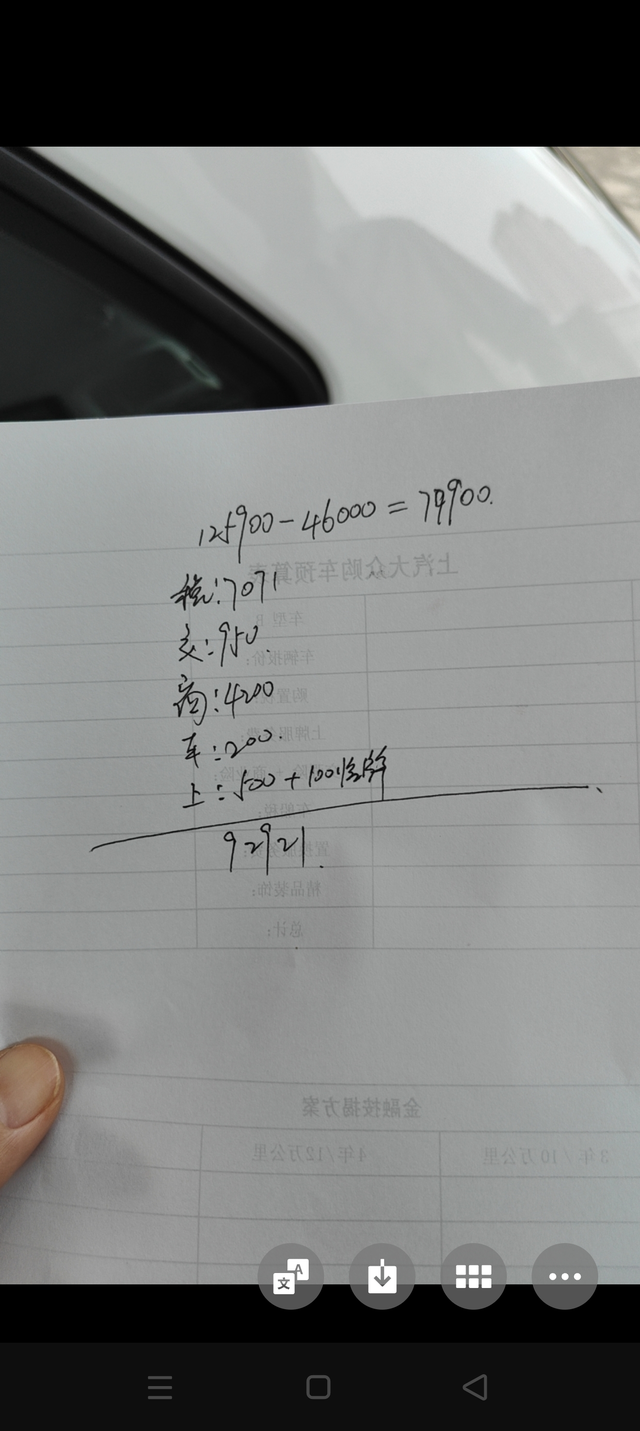 125900-46000=79900.
税:7071
交:950.
商:4200
车:200.
上:500+100临牌
92921.
上汽大众购车预算表
车型
车辆报价:
购置税:
上牌服务费:
车船税:
精品装饰:
总计:
金融按揭方案
4年/12万公里
3年/10万公里